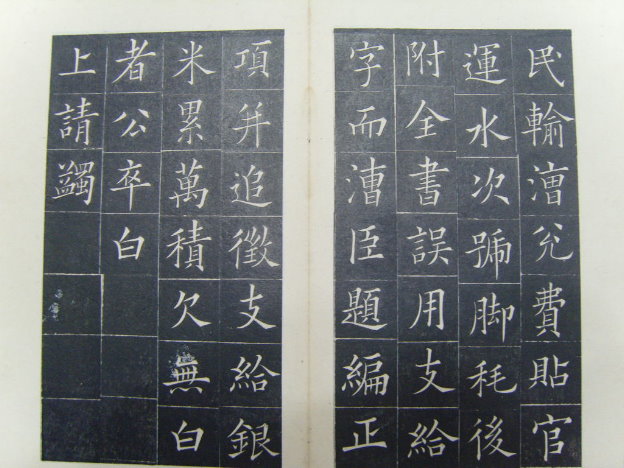 民輸漕兊費貼官
運水次號脚秏後
附全書誤用支給
字而漕臣題編正
項并追徵支給銀
米累萬積欠無白
者公卒白
上請蠲